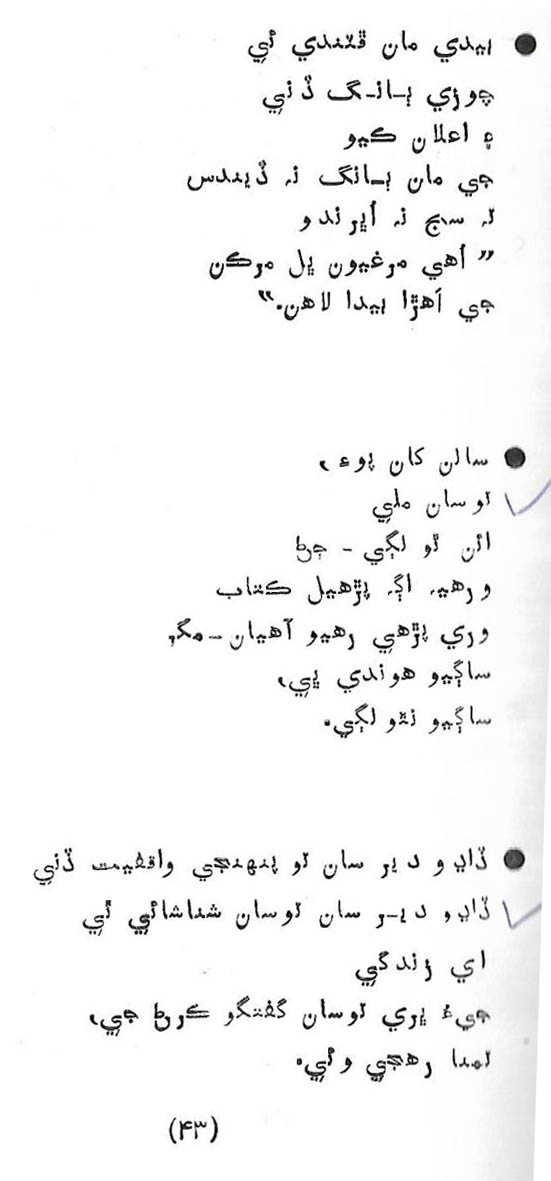 ● بيدي مان ڦٽندي ئي
چوزي ٻانگ ڏني
۽ اعلان ڪيو
جي مان ٻانگ نہ ڏيندس
تہ سج نہ اُڀرندو
” اُهي مرغيون ڀل مرڪن
جي اَهڙا بيدا لاهن.“
● سالن کان پوءِ،
توسان ملي
ائن ٿو لڳي - ڄڻ
ورهيہ اڳہ پڙهيل ڪتاب
وري پڙهي رهيو آهيان - مگر
ساڳيو هوندي ڀي،
ساڳيو نٿو لڳي.
● ڏاڍو دير سان تو پنهنجي واقفيت ڏني
ڏاڍو دير سان توسان شناشائي ٿي
اي زندگي
جيءُ ڀري توسان گفتگو ڪرڻ جي،
تمنا رهجي وئي.
(۴۳)